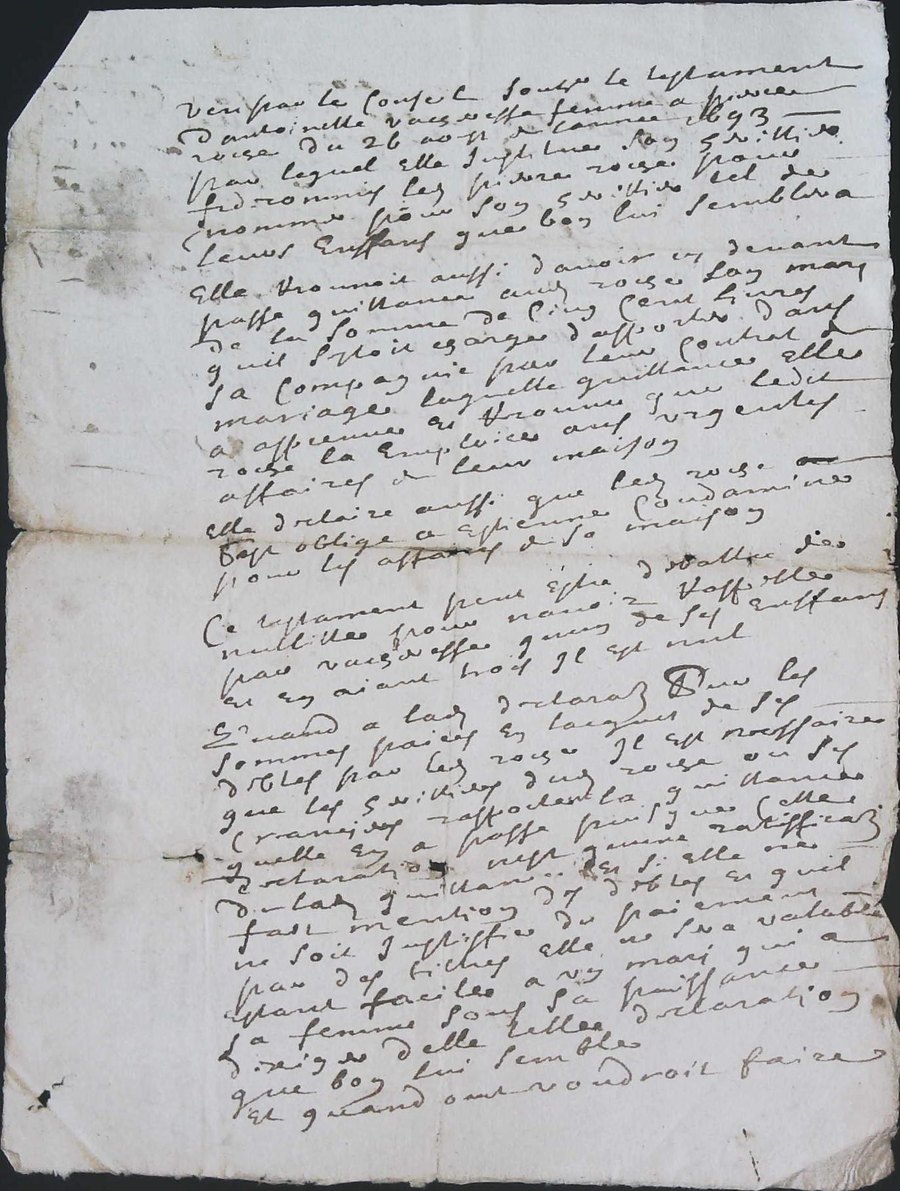 Veu par le Conseil soubz le testament
d'antoinette vacheresse femme a pierre
roche du 26 aoust de lannee 1693
par lequel elle Institue son heritier
fideicommis led pierre roche pour
nommer pour son heritier tel de
leurs Enffans que bon lui semblera
Elle recounoit aussi davoir cy devant
passe quittance aud roche son mary
de la somme de Cinq Cent livres
quil sestoit charge dapporter dans
sa Compagnie par leur Contrat de
mariage laquelle quittance elle
a approuvee et recounu que ledit
roche la Employee aux urgentes
affaires de leur maison
Elle declaire aussi que led roche
sest oblige a Estienne Condamine
pour les affaires de sa maison
Ce testament peut Estre debattu de
nullitte pour navoir rappelle
par vacheresse quun de ses Enffans
et En aiant trois Il est nul
Quand a lad declaraon sur les
sommes paiees En lacquit de ses
debtes par led roche Il est necessaire
que les heritiers dud roche ou ses
Creanciers rapportent la quittance
quelle En a passe puis que Cette
declaration nest quune rattifficaon
de lad quittance et si elle ne
fait mention des debtes et quil
ne soit Justiffie du paiement
par des tiltres elle ne sera valable
estant facile a un mary qui a
sa femme sous sa puissance
dexiger delle telle declaration
que bon lui semble
Et quand ont voudroit faire